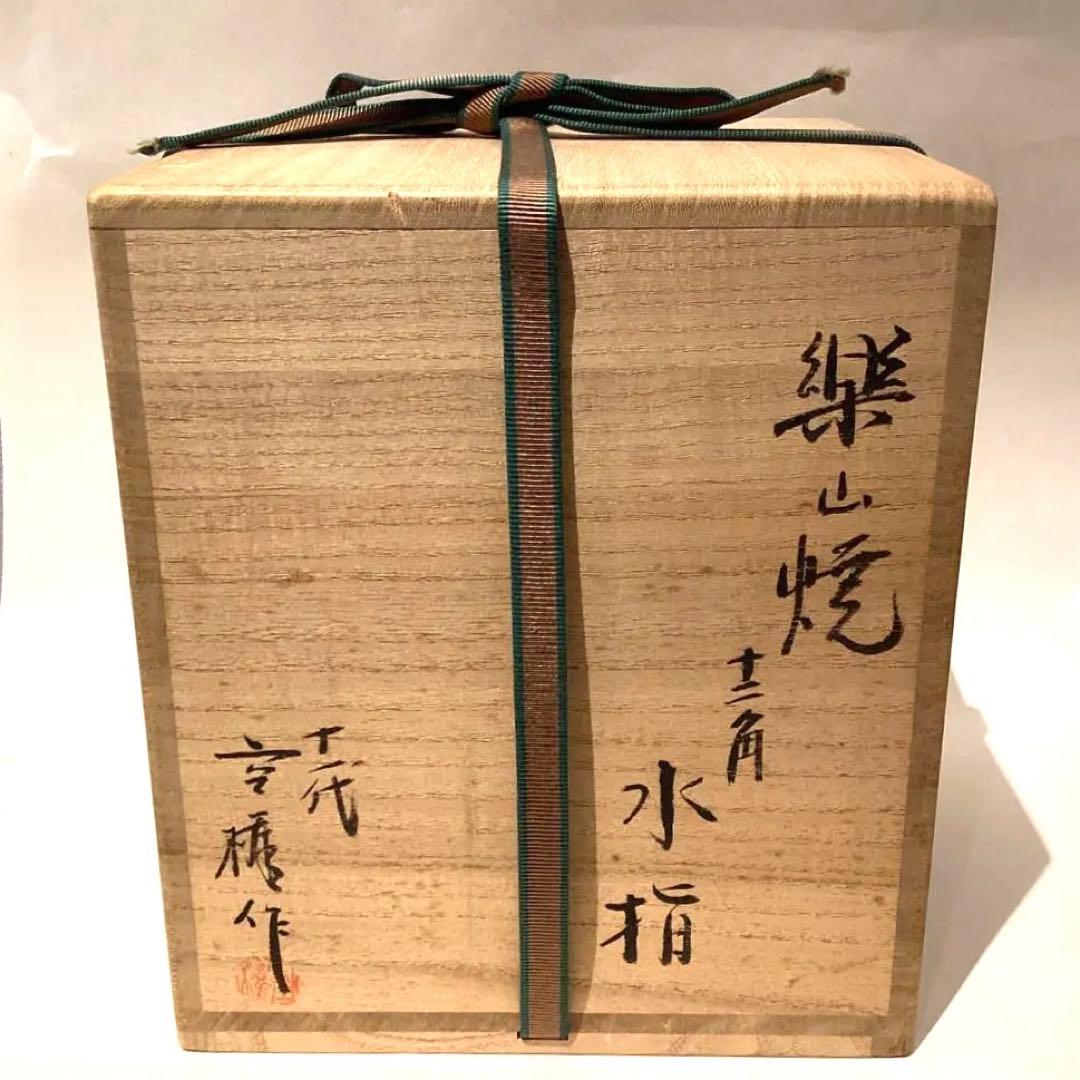 樂山焼
十二角
水指
十一代
空権作